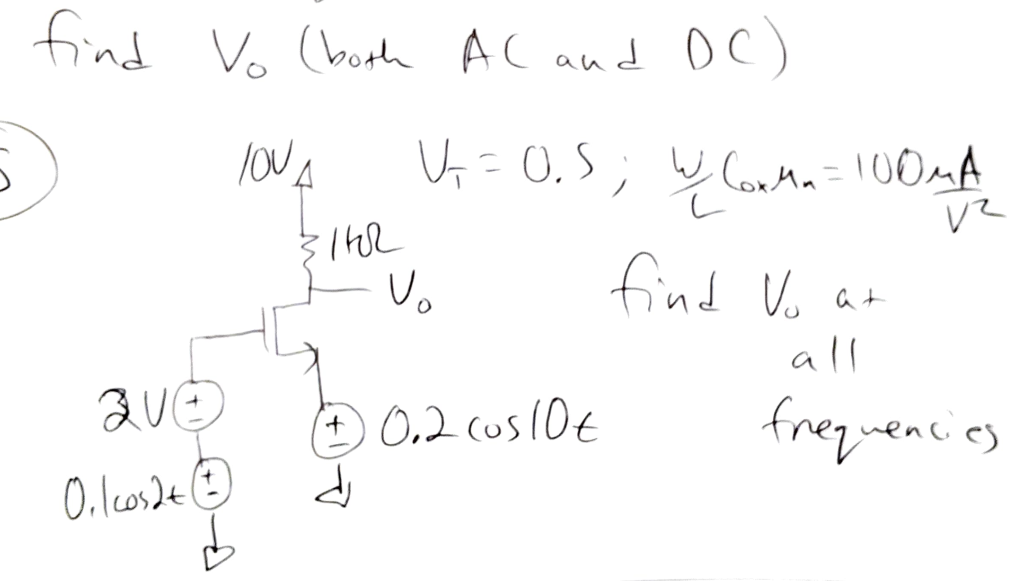 find Vo (both AC and DC)
5
10V
VT = 0.5 ; W/L Cox μn = 100 μA/V²
1kΩ
Vo
find Vo at
all
frequencies
V
+
-
+
-
0.2 cos10t
0.1cos2t
+
-